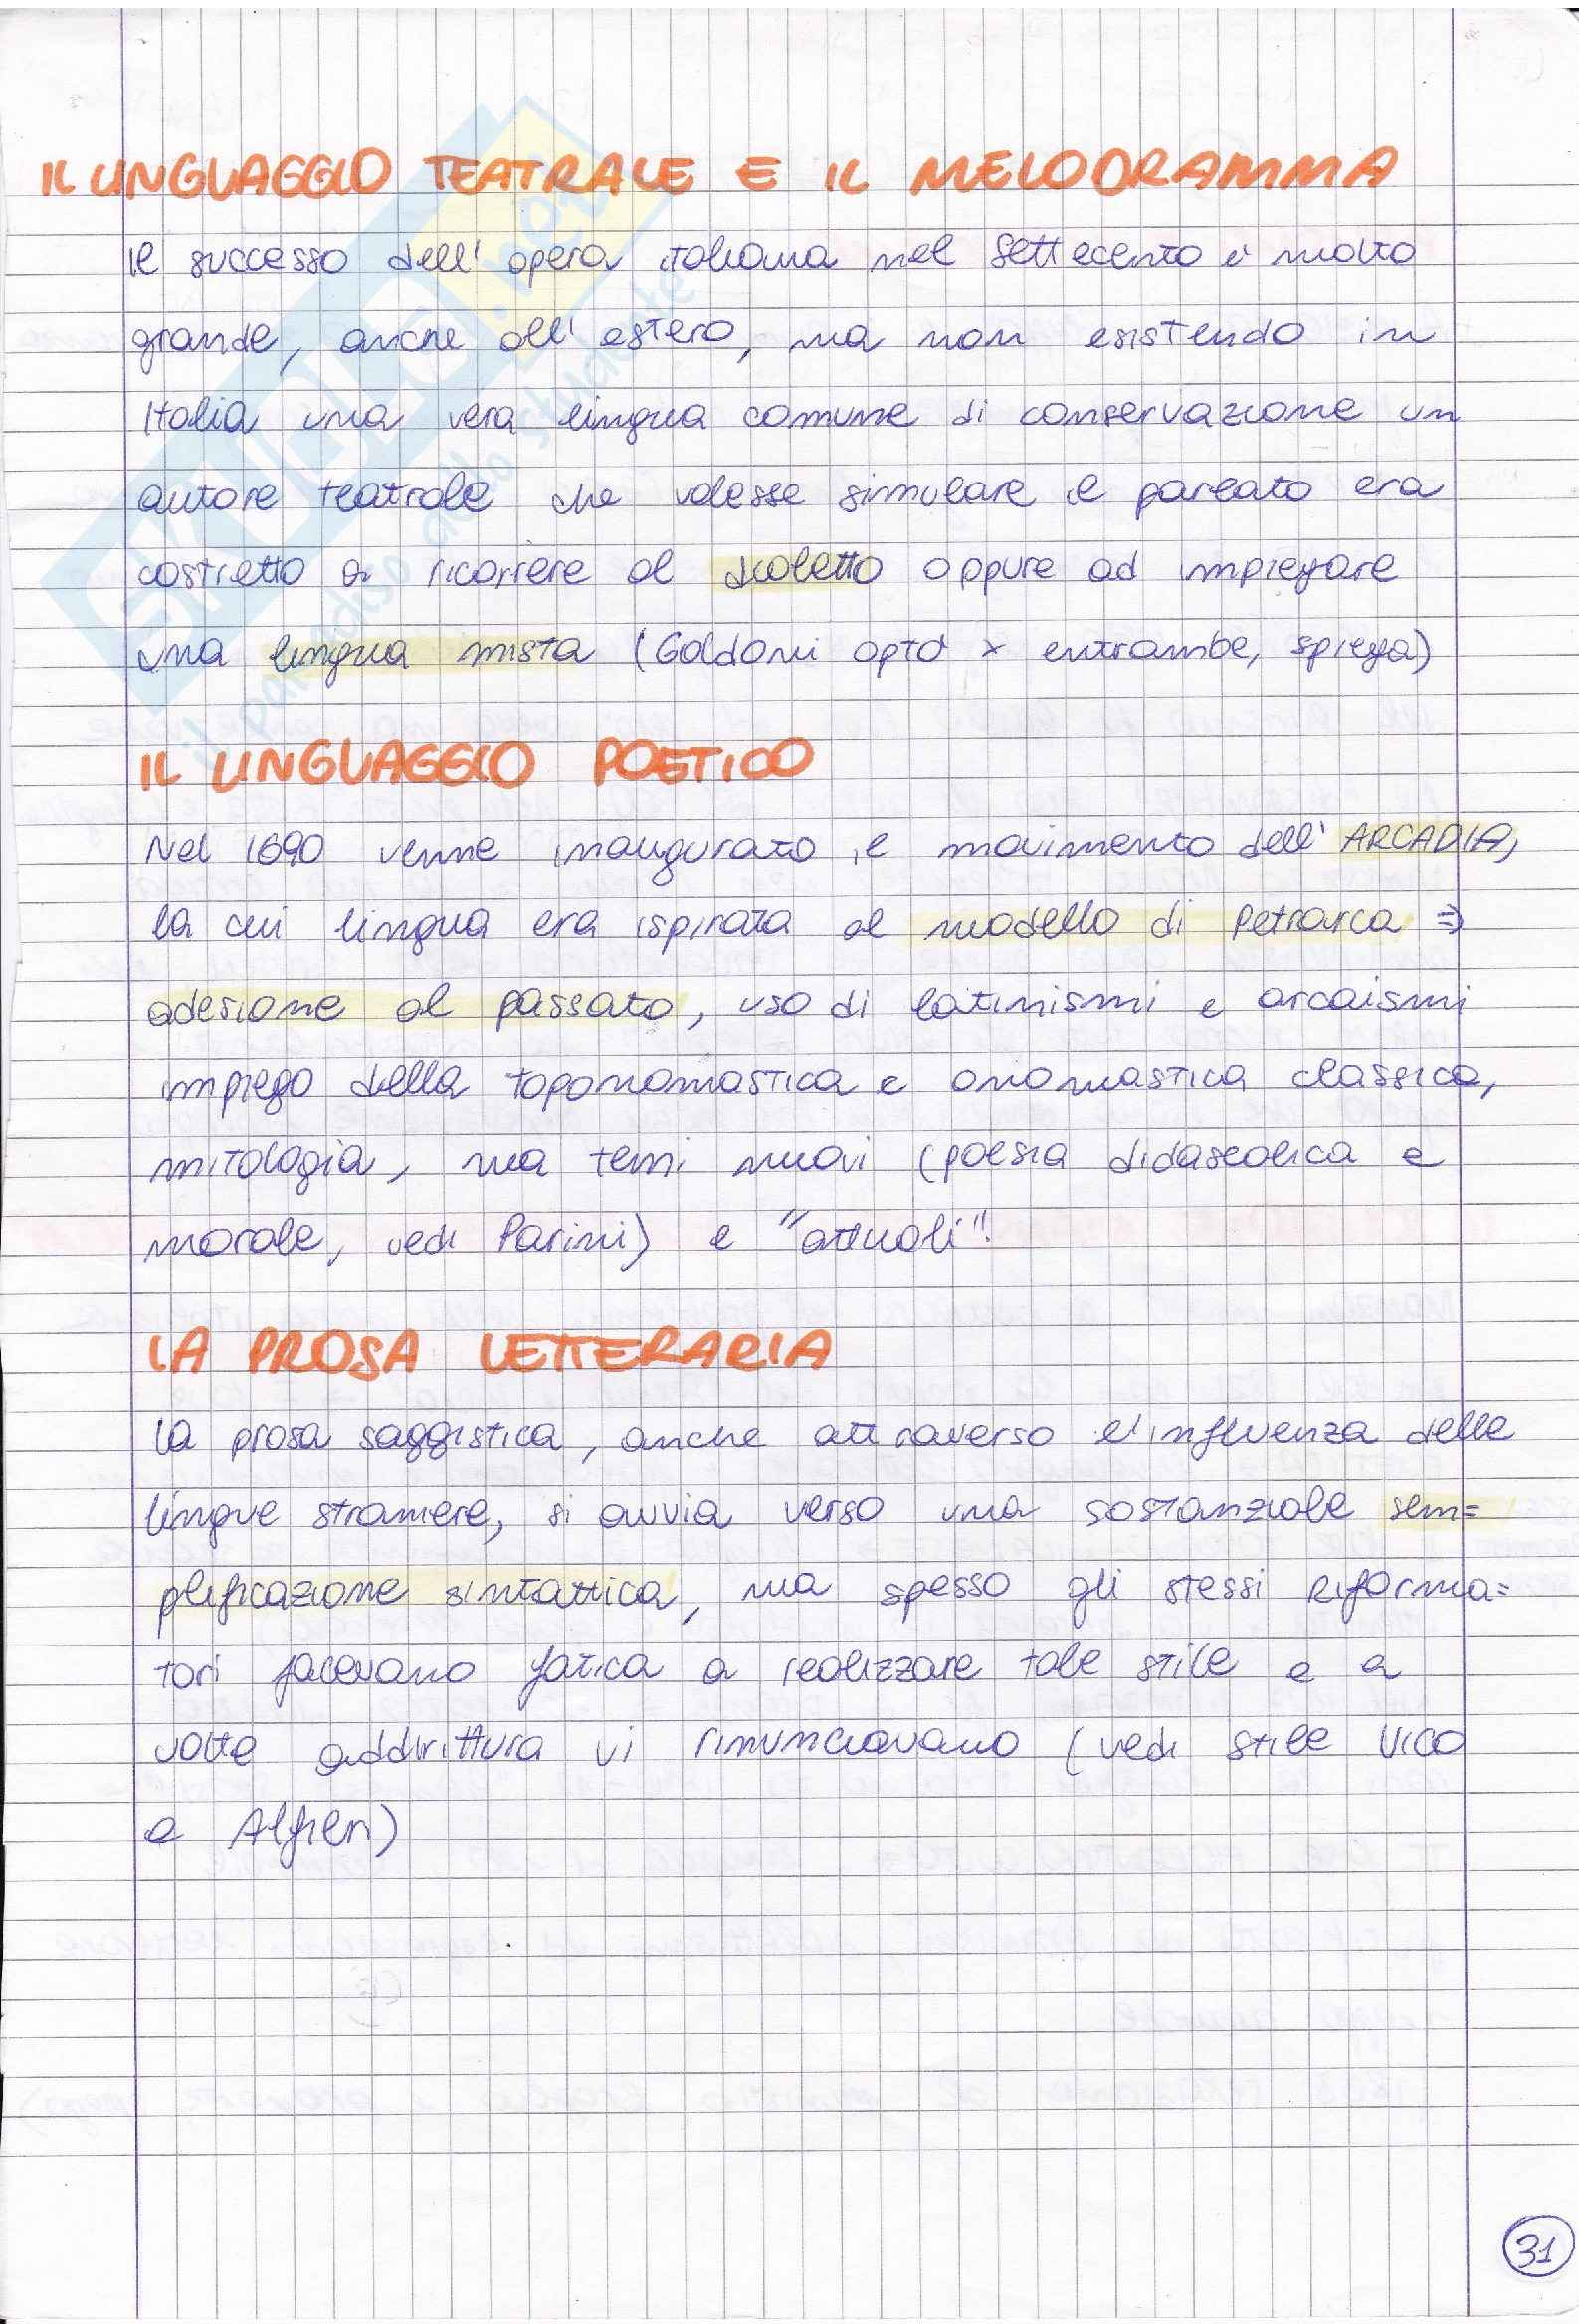 IL LINGUAGGIO TEATRALE E IL MELODRAMMA
Il successo dell'opera italiana nel Settecento è molto
grande, anche all'estero, ma non esistendo in
Italia una vera lingua comune di conservazione un
autore teatrale che volesse simulare il parlato era
costretto a ricorrere al dialetto oppure ad impiegare
una lingua mista (Goldoni optò x entrambe, spiega)
IL LINGUAGGIO POETICO
Nel 1690 venne inaugurato il movimento dell'ARCADIA,
la cui lingua era ispirata al modello di Petrarca =>
adesione al passato, uso di latinismi e arcaismi
impiego della toponomastica e onomastica classica,
mitologia, ma temi nuovi (poesia didascalica e
morale, vedi Parini) e "attuali"!
LA PROSA LETTERARIA
La prosa saggistica, anche attraverso l'influenza delle
lingue straniere, si avvia verso una sostanziale sem=
plificazione sintattica, ma spesso gli stessi riforma=
tori facevano fatica a realizzare tale stile e a
volte addirittura vi rinunciavano (vedi stile Vico
e Alfieri)
31
SKUOLA.net
il paradiso dello studente